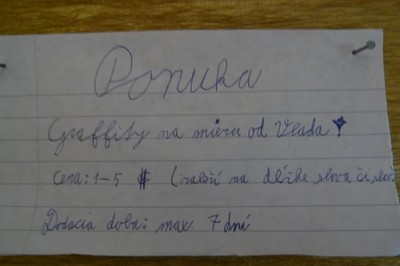 Ponuka
Graffity na mieru od Vlada
Cena: 1-5 $ (záleží na dĺžke slova či
Dodacia doba: max 7 dní